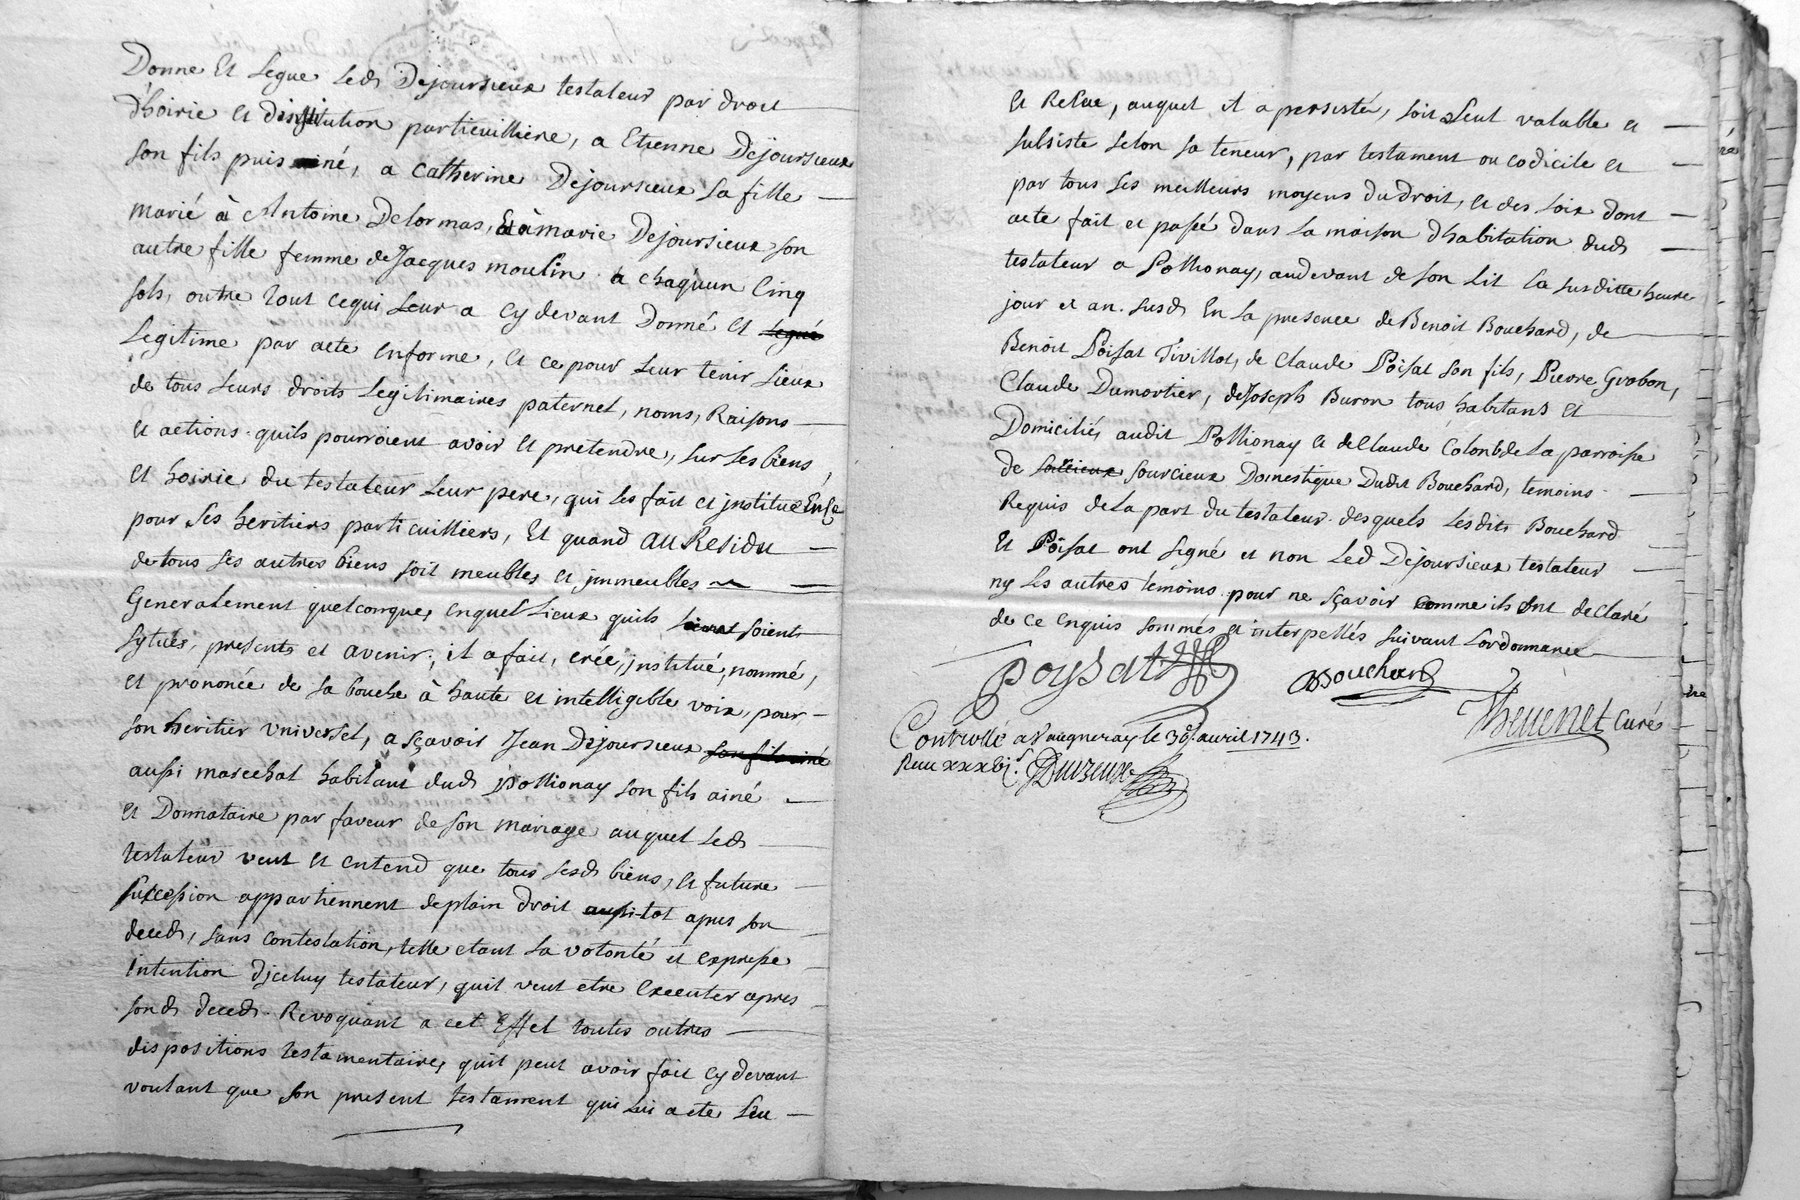 Donne et Legue Led. Dejoursieux testateur par droit
d'hoirie et distitution particuilliere, a Etienne Dejoursieux
son fils puis né, a Catherine Dejoursieux sa fille
marié à Antoine Delormas, Et à marie Dejoursieux son
autre fille femme de Jacques moulin a chaqûun Cinq
sols, outre tout cequi Leur a Cy devant Donné et legué
Legitime par acte enforme, et ce pour Leur tenir Lieux
de tous Leurs droits Legitimaires paternel, noms, Raisons
et actions quils pourroient avoir et pretendre, sur Les biens
et hoirie du testateur Leur pere, qui les fait et institue
pour ses heritiers particuilliers, Et quand au Residu
de tous ses autres biens soit meubles et jmmeubles
Generalement quelconque, enquel Lieux quils soients
sytués, presents et avenir; il a fait, crée, jnstitué, nommé,
et prononcée de sa bouche à haute et intelligible voix, pour
son heritier vniversel, a sçavoir Jean Dejoursieux son fils ainé
aussi marechal habitant dud. pollionay son fils ainé
et Donnataire par faveur de son mariage auquel Led.
testateur veut et entend que tous sesd. biens, et future
succession appartiennent deplain droit aussi-tot apres son
deced, sans contestation, telle etant sa volonté et expresse
intention djceluy testateur, quil veut etre Executer apres
sond. deced. Revoquant a cet Effet toutes autres
dispositions testamentaire, quil peut avoir fait cy devant
voulant que son present testament qui Lui a ete Leu
et Relue, auquel il a persisté, soit Seul valable et
subsiste selon sa teneur, par testament ou codicile et
par tous Les meilleurs moyens dudroit, et des Loix dont
acte fait et passé dans La maison d'habitation dud.
testateur a Pollionay, audevant de son Lit La susditte heure
jour et an. susd. En La presence de Benoit Bouchard, de
Benoit Poisat Tivillot, de Claude Poisat son fils, Pierre Grobon,
Claude Dumortier, de Joseph Buron tous habitans et
Domiciliés audit Pollionay et de Claude Colomb de La parroisse
de sourcieux Domestique Dudit Bouchard, temoins
Requis de La part du testateur desquels Lesdits Bouchard
et Poisat ont signé et non Led. Dejoursieux testateur
ny Les autres temoins pour ne sçavoir comme ils ont declaré
de ce enquis sommés et interpellés suivant L'ordonnance
poysat Bouchard
Thevenet Curé
Controllé a Vaugneray le 30 avril 1743.